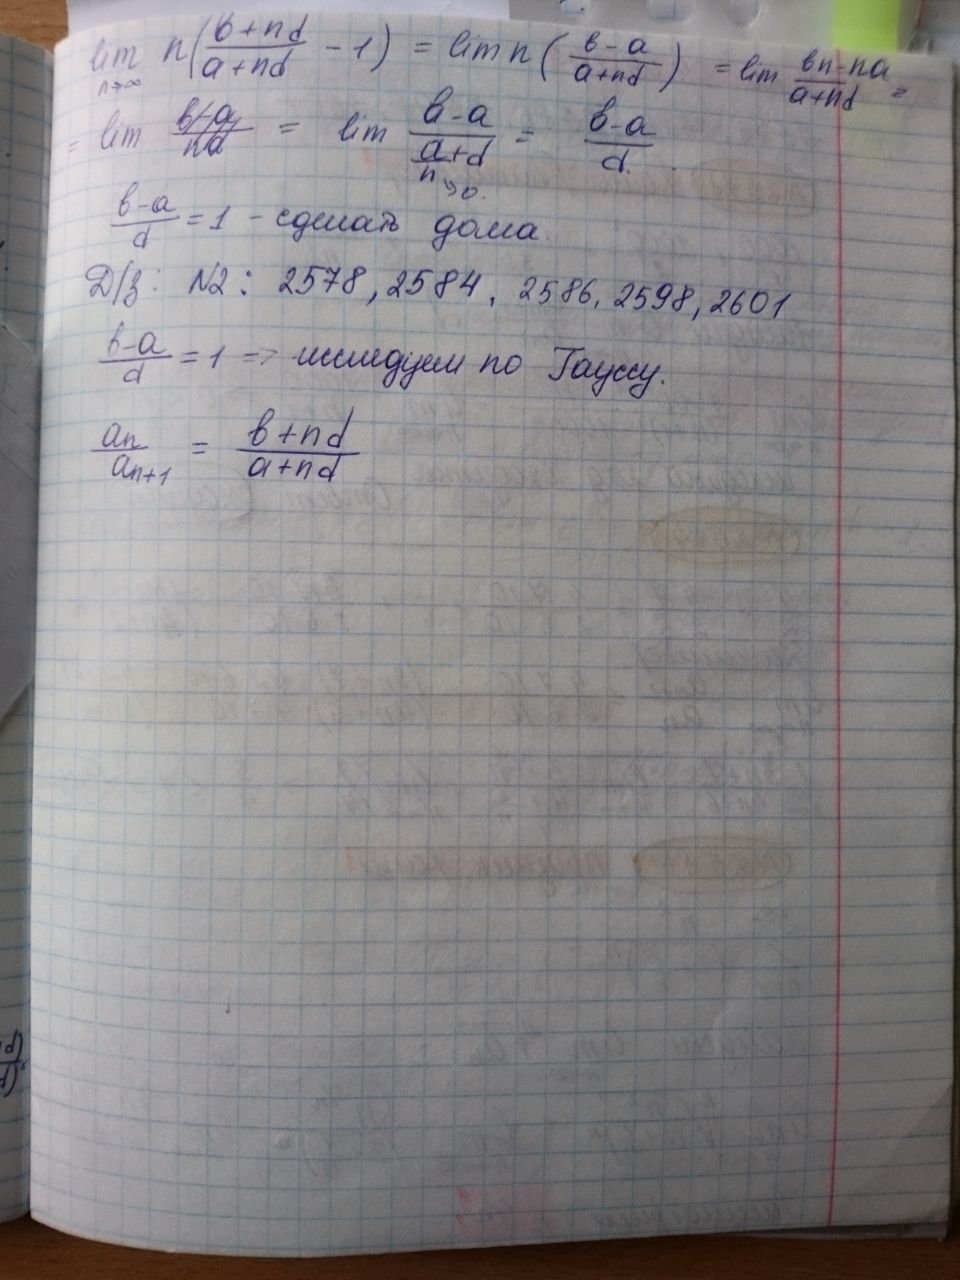 lim n→∞ n( (в+nd)/(a+nd) - 1 ) = lim n ( (в-a)/(a+nd) ) = lim (вn-na)/(a+nd) =
= lim = lim (в-a)/(a/n+d) = (в-a)/d.
n →0.
(в-a)/d = 1 - сделать дома.
Д/з: N2: 2578, 2584, 2586, 2598, 2601
(в-a)/d = 1 => исследуем по Гауссу.
an/an+1 = (в+nd)/(a+nd)